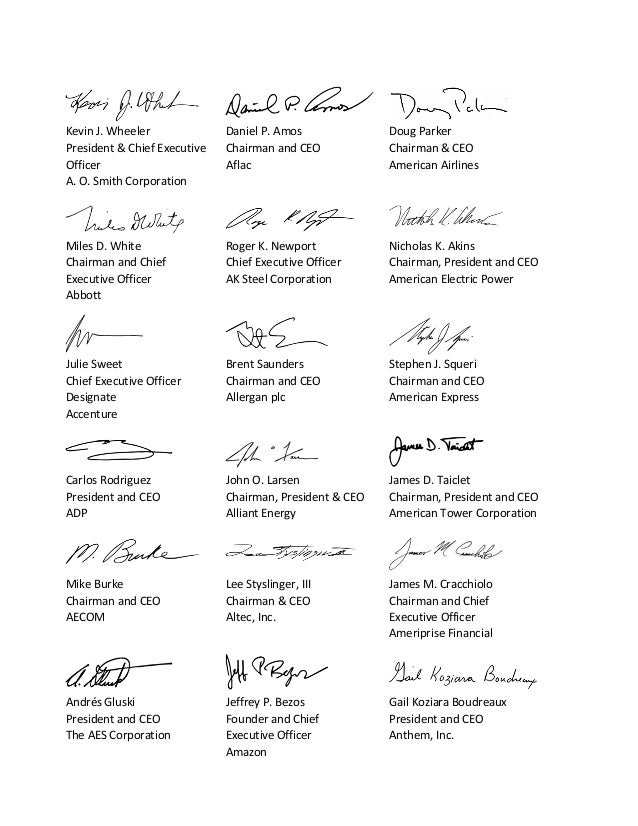 Kevin J. Wheeler
President & Chief Executive
Officer
A. O. Smith Corporation
Daniel P. Amos
Daniel P. Amos
Chairman and CEO
Aflac
Doug Parker
Chairman & CEO
American Airlines
Miles D White
Miles D. White
Chairman and Chief
Executive Officer
Abbott
Roger K. Newport
Chief Executive Officer
AK Steel Corporation
Nicholas K. Akins
Chairman, President and CEO
American Electric Power
Julie Sweet
Chief Executive Officer
Designate
Accenture
Brent Saunders
Chairman and CEO
Allergan plc
Stephen J. Squeri
Chairman and CEO
American Express
Carlos Rodriguez
President and CEO
ADP
John O. Larsen
Chairman, President & CEO
Alliant Energy
James D. Taiclet
James D. Taiclet
Chairman, President and CEO
American Tower Corporation
M. Burke
Mike Burke
Chairman and CEO
AECOM
Lee Styslinger, III
Chairman & CEO
Altec, Inc.
James M. Cracchiolo
Chairman and Chief
Executive Officer
Ameriprise Financial
Andrés Gluski
President and CEO
The AES Corporation
Jeff P. Bezos
Jeffrey P. Bezos
Founder and Chief
Executive Officer
Amazon
Gail Koziara Boudreaux
Gail Koziara Boudreaux
President and CEO
Anthem, Inc.